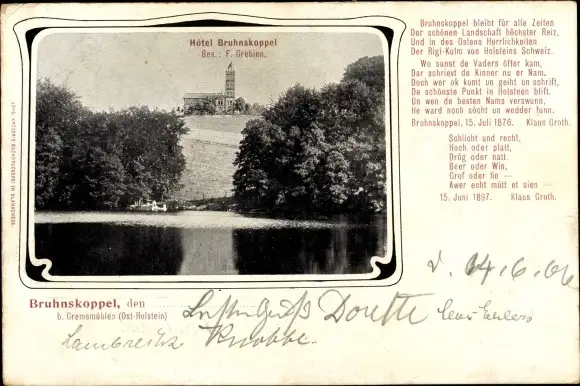 Hôtel Bruhnskoppel
Bes.: F. Grebien.
Bruhnskoppel bleibt für alle Zeiten
Der schönen Landschaft höchster Reiz,
Und in des Ostens Herrlichkeiten
Der Rigi-Kulm von Holsteins Schweiz.
Wo sunst de Vaders öfter kam,
Dar schrievt de Kinner nu er Nam.
Doch wer ok kumt un geiht un schrift,
De schönste Punkt in Holsteen blift.
Un wen de besten Nams verswunn,
He ward noch söcht un wedder funn.
Bruhnskoppel, 15. Juli 1876. Klaus Groth.
Schlicht und recht,
Hoch oder platt,
Drög oder natt.
Beer oder Win,
Grof oder fie —
Awer echt mütt et sien —
15. Juni 1897. Klaus Groth.
14.6.06
Bruhnskoppel, den
b. Gremsmühlen (Ost-Holstein)
Dorette